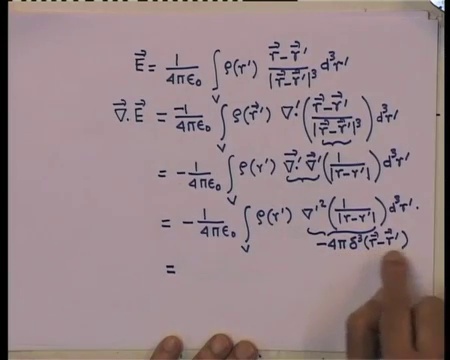 E⃗ = 1/4πε₀ ∫_V ρ(r') (r⃗ - r⃗')/|r⃗ - r⃗'|³ d³r'
∇⃗. E⃗ = -1/4πε₀ ∫_V ρ(r⃗') ∇'. ((r⃗ - r⃗')/|r⃗ - r⃗'|³) d³r'
= - 1/4πε₀ ∫_V ρ(r') ∇⃗'. ∇⃗' (1/|r - r'|) d³r'
= - 1/4πε₀ ∫_V ρ(r') ∇'² (1/|r - r'|) d³r'.
-4π δ³(r⃗ - r⃗')
=